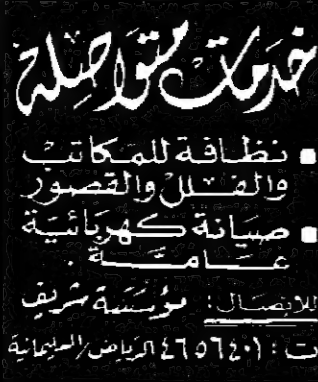 خدمات متواصلة
▪ نظافة للمكاتب
والفلل والقصور
▪ صيانة كهربائية
عامة .
للاتصال : مؤسسة شريف
ت : ٤٦٥٦٤٠١ الرياض / السليمانية